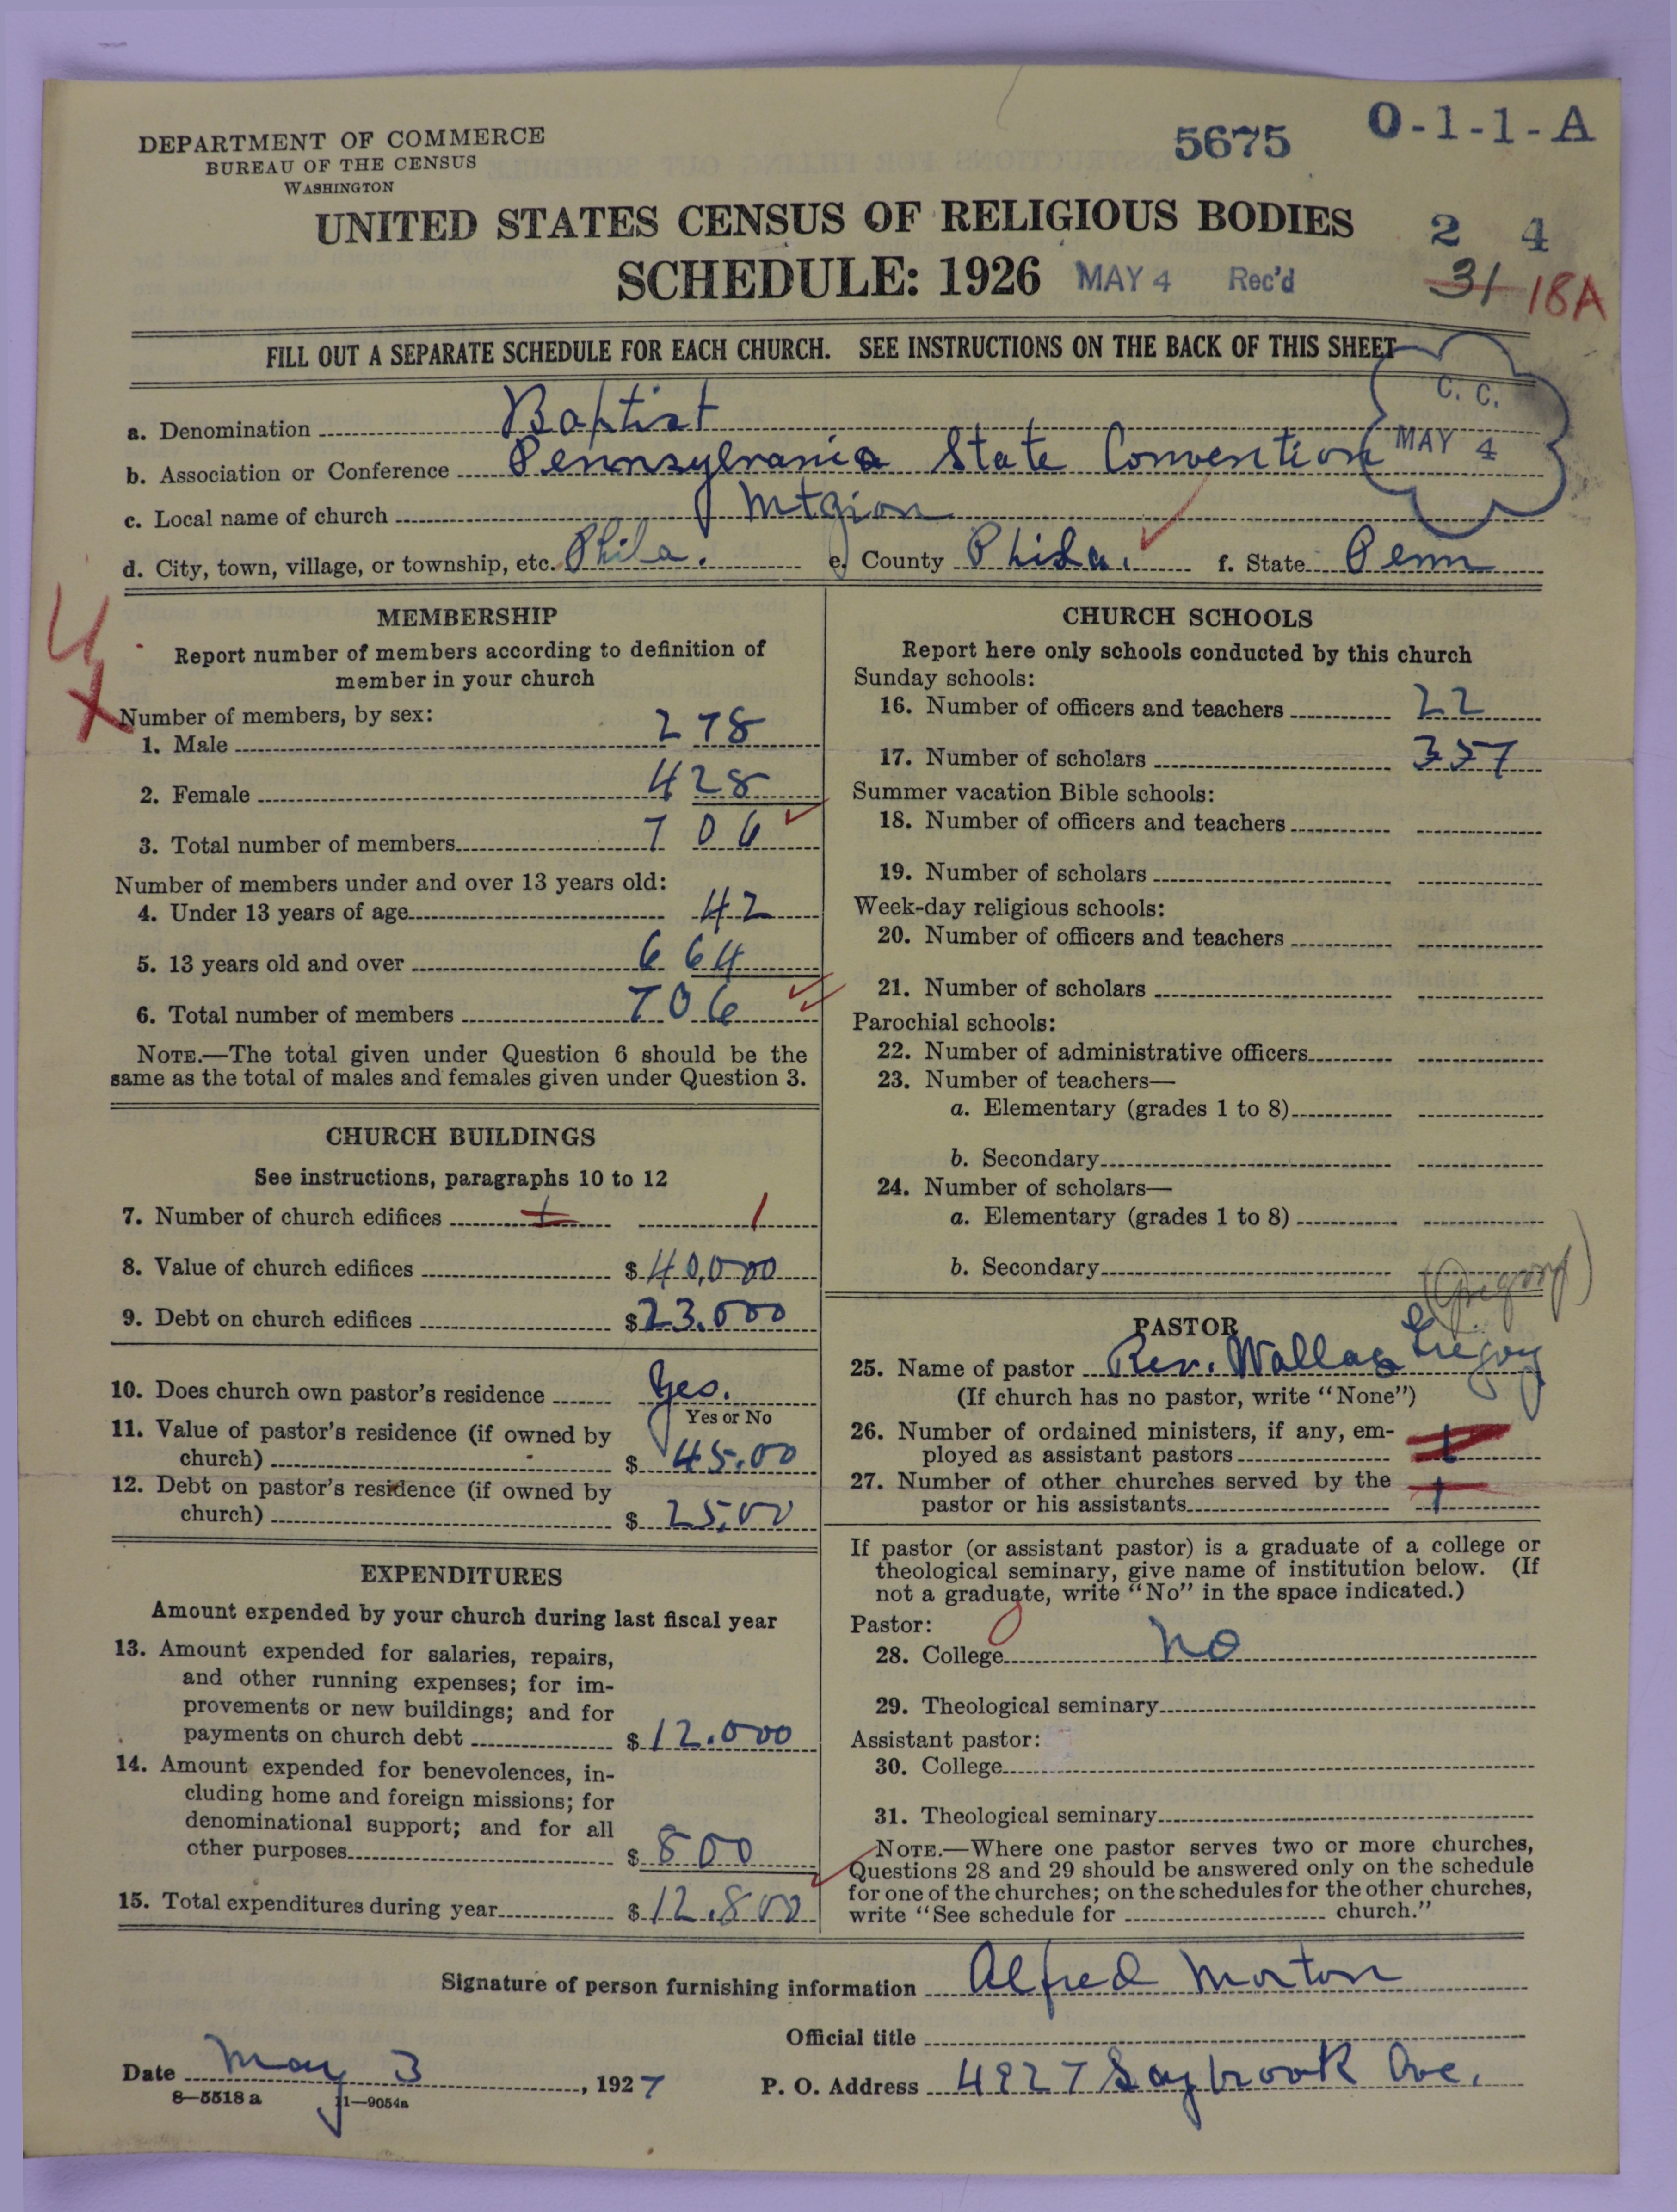 DEPARTMENT OF COMMERCE
BUREAU OF THE CENSUS
WASHINGTON
5675
O-1-1-A
UNITED STATES CENSUS OF RELIGIOUS BODIES
2 4
SCHEDULE: 1926 MAY 4 Rec'd
31 18A
FILL OUT A SEPARATE SCHEDULE FOR EACH CHURCH. SEE INSTRUCTIONS ON THE BACK OF THIS SHEET
C. C.
MAY 4
a. Denomination Baptist
b. Association or Conference Pennsylvania State Convention
c. Local name of church Mt Zion
d. City, town, village, or township, etc. Phila. e. County Phila. f. State Penn
4
X
MEMBERSHIP
Report number of members according to definition of
member in your church
Number of members, by sex:
1. Male 278
2. Female 428
3. Total number of members 706
Number of members under and over 13 years old:
4. Under 13 years of age 42
5. 13 years old and over 664
6. Total number of members 706
NOTE.—The total given under Question 6 should be the
same as the total of males and females given under Question 3.
CHURCH BUILDINGS
See instructions, paragraphs 10 to 12
7. Number of church edifices 1 1
8. Value of church edifices $ 40,000
9. Debt on church edifices $ 23.000
10. Does church own pastor's residence Yes.
Yes or No
11. Value of pastor's residence (if owned by
church) $ 45.00
12. Debt on pastor's residence (if owned by
church) $ 25,00
EXPENDITURES
Amount expended by your church during last fiscal year
13. Amount expended for salaries, repairs,
and other running expenses; for im-
provements or new buildings; and for
payments on church debt $ 12.000
14. Amount expended for benevolences, in-
cluding home and foreign missions; for
denominational support; and for all
other purposes $ 800
15. Total expenditures during year $ 12.800
CHURCH SCHOOLS
Report here only schools conducted by this church
Sunday schools:
16. Number of officers and teachers 22
17. Number of scholars 357
Summer vacation Bible schools:
18. Number of officers and teachers
19. Number of scholars
Week-day religious schools:
20. Number of officers and teachers
21. Number of scholars
Parochial schools:
22. Number of administrative officers
23. Number of teachers—
a. Elementary (grades 1 to 8)
b. Secondary
24. Number of scholars—
a. Elementary (grades 1 to 8)
b. Secondary
(Gregory)
PASTOR
25. Name of pastor Rev. Wallace Gregory
(If church has no pastor, write "None")
26. Number of ordained ministers, if any, em-
ployed as assistant pastors 1
27. Number of other churches served by the
pastor or his assistants 1
If pastor (or assistant pastor) is a graduate of a college or
theological seminary, give name of institution below. (If
not a graduate, write "No" in the space indicated.)
Pastor: 0
28. College No
29. Theological seminary
Assistant pastor:
30. College
31. Theological seminary
NOTE.—Where one pastor serves two or more churches,
Questions 28 and 29 should be answered only on the schedule
for one of the churches; on the schedules for the other churches,
write "See schedule for church."
Signature of person furnishing information Alfred Morton
Official title
Date May 3, 1927 P. O. Address 4927 Saybrook Ave.
8—5518 a 11—9054a